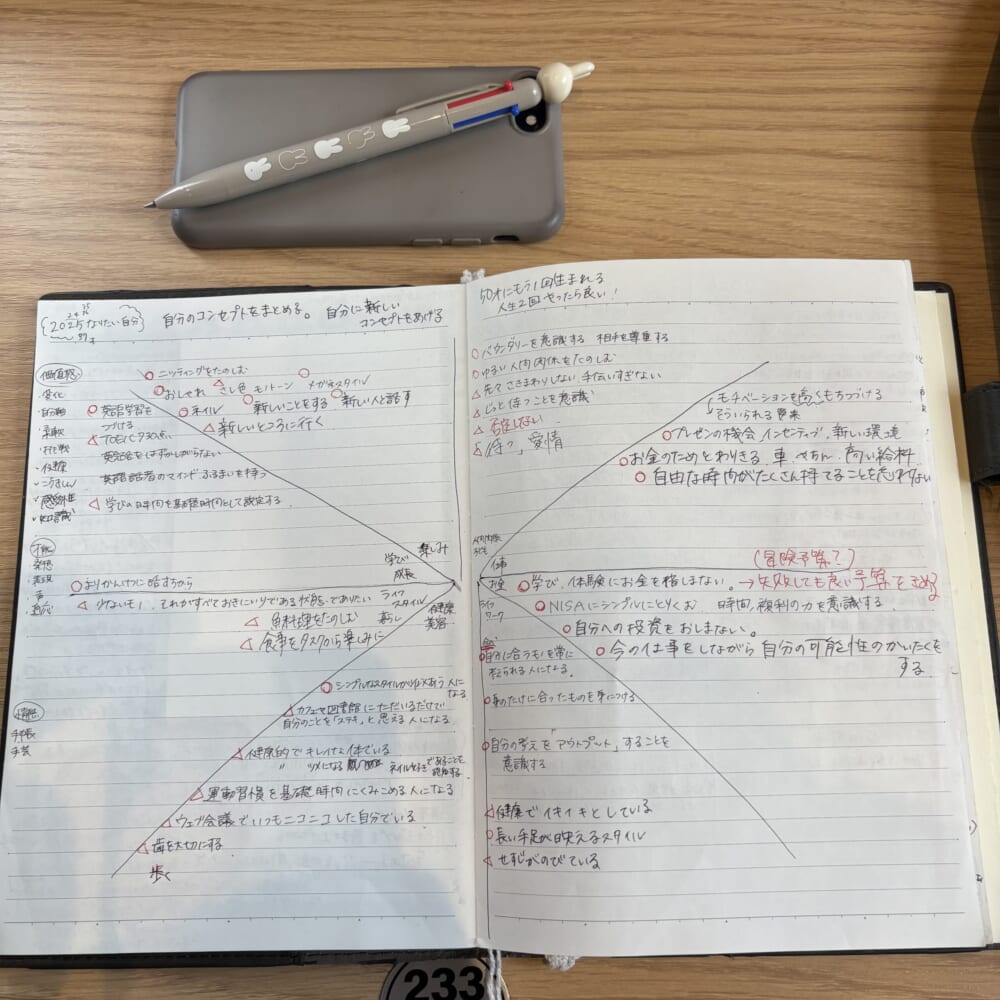 2025なりたい自分
自分のコンセプトをまとめる。 自分に新しい
コンセプトをあげる
価値観
変化
自分軸
柔軟
挑戦
健康
感受性
知識
ニッティングをたのしむ
おしゃれ さし色 モノトーン メガネスタイル
ネイル 新しいことをする 新しい人と話す
新しいところに行く
英語学習を
つづける
TOEIC 930点
英会話をはずかしがらない
英語話者のマインド ふるまいを持つ
学びの時間を基礎時間として設定する
楽しみ
学び
成長
才能
発想
表現
声
少ないモノ、それがすべておきにいりである状態でありたい
ライフ
スタイル
暮し
健康
美容
魚料理をたのしむ
食事をタスクから楽しみに
シンプルなスタイルが似あう人に
なる
カフェや図書館にただいるだけで
自分のことを「ステキ」と思える人になる
情熱
手帳
手芸
健康的でキレイな体でいる
〃 ツメになる
運動習慣を基礎時間にくみこめる人になる
ウェブ会議でいつもニコニコした自分でいる
歯を大切にする
歩く
50才にもう1回生まれる
人生2回やったら良い!
バウンダリーを意識する 相手を尊重する
ゆるい人間関係をたのしむ
先てささまわりしない 手伝いすぎない
じっと待つことを意識
否定しない
「待つ」愛情
モチベーションを高くもちつづける
そういられる
プレゼンの機会 インセンティブ 新しい環境
お金のためとわりきる 車、やちん、高い給料
自由な時間がたくさん持てることを忘れない
人間関係
仕事
お金
ライフ
ワーク
(冒険予算?)
学び、体験にお金を惜しまない。→失敗しても良い予算をきめる
NISAにシンプルにとりくむ 時間、複利の力を意識する
自分への投資をおしまない。
自分に合うモノを常に
考えられる人になる。
今の仕事をしながら 自分の可能性のかいたくを
する
身のたけに合ったものを身につける
自分の考えを「アウトプット」することを
意識する
健康でイキイキとしている
長い手足が映えるスタイル
せすじがのびている
233